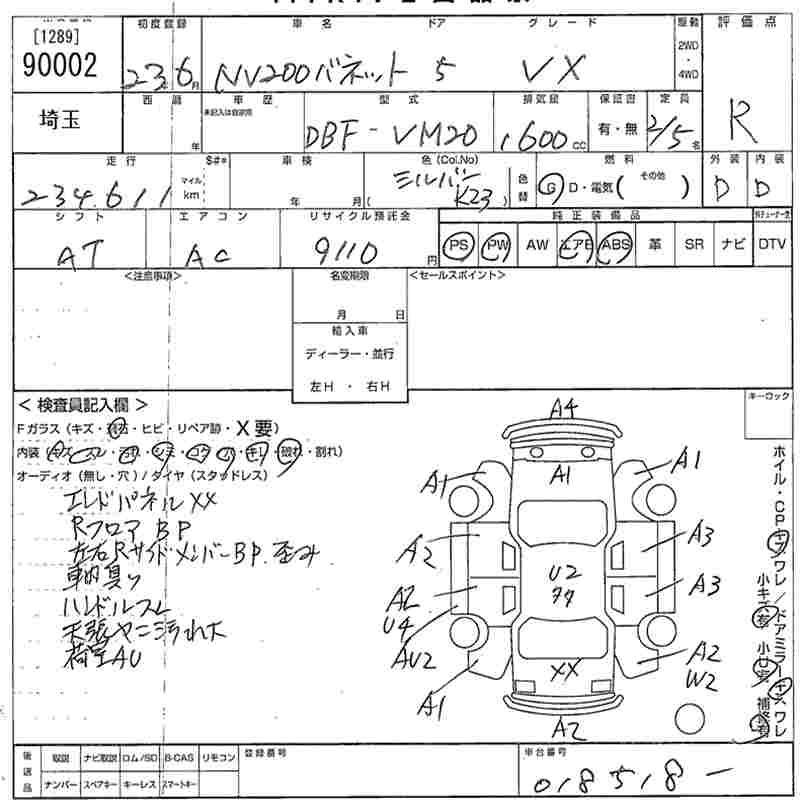 初度登録 車名 ドア グレード 駆動 評価点
[1289]
90002
23年 6月 NV200バネット 5 VX 2WD・4WD
R
埼玉 西暦 年 車歴 未記入は自家用 型式 排気量 保証書 定員
DBF-VM20 1600cc 有・無 2/5名
走行 S#* 車検 色(Col.No) 燃料 外装 内装
234,611 マイル km 年 月 シルバー (K23) 色替 G D・電気( その他 ) D D
シフト エアコン リサイクル預託金 純正装備品
AT AC 9110円 PS PW AW エアB ABS 革 SR ナビ DTV
<注意事項> 名変期限 <セールスポイント>
月 日
輸入車
ディーラー・並行
左H・右H
<検査員記入欄> キーロック
Fガラス(キズ・飛石・ヒビ・リペア跡・X要)
内装(キズ・スレ・汚れ・シミ・コゲ・穴・キレ・破れ・割れ)
オーディオ(無し・穴)/タイヤ(スタッドレス)
エンドパネルXX
RフロアBP
左右RサイドメンバーBP.歪み
車内臭い
ハンドルスレ
天張ヤニ汚れ大
荷室AU
A4
A1
A1 A1
A2 A3
U2
A2 A3
U4
AU2 A2
W2
XX
A1
A2
ホイル・CPキズワレ/ドアミラーキズワレ
小キズ有 小U有 補修有
後送品 取説 ナビ取説 ロム/SD B-CAS リモコン 登録番号 車台番号
ナンバー スペアキー キーレス スマートキー
018518-